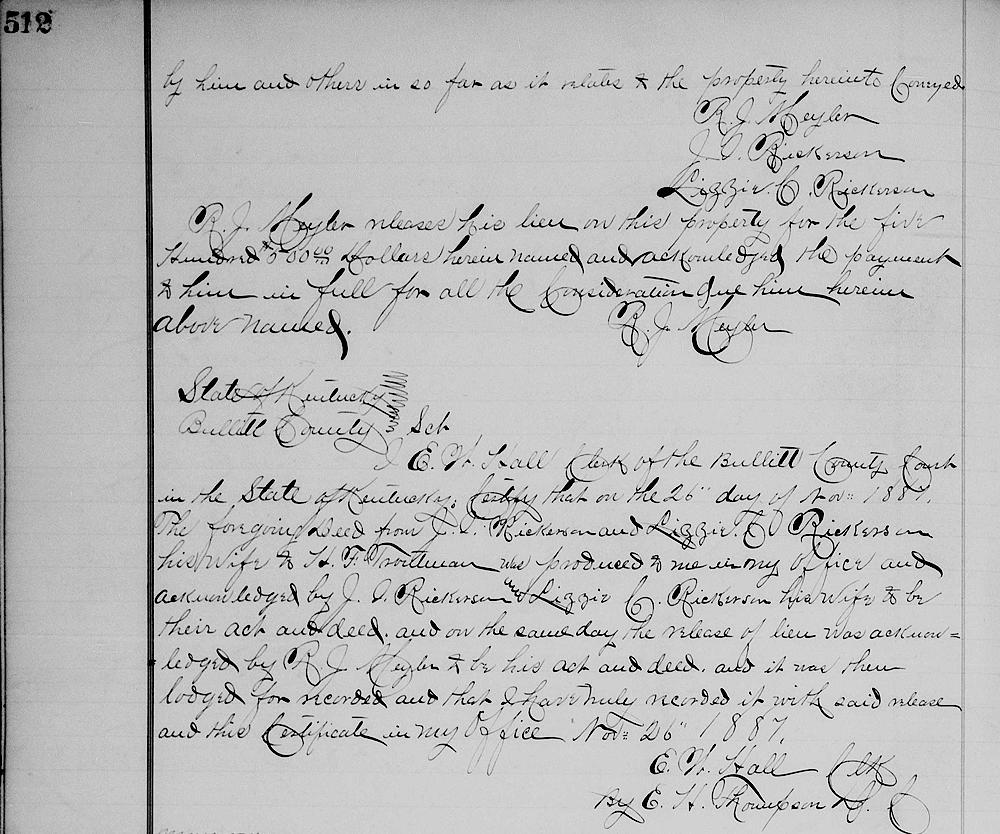 512
by him and others in so far as it relates to the property hereinto Conveyed
R. J. Meyler
J. T. Rickerson
Lizzie C. Rickerson
R. J. Meyler releases his lien on this property for the five
Hundred $500 00 Dollars herein named and acknowledged the payment
to him in full for all the Consideration due him herein
above named.
R. J. Meyler
State of Kentucky
Bullitt County Sct
I E. W. Hall Clerk of the Bullitt County Court
in the State of Kentucky, Certify that on the 26" day of Nov= 1887.
The foregoing Deed from J. T. Rickerson and Lizzie. C. Rickerson
his Wife to H. F. Troutman was produced to me in my office and
acknowledged by J. T. Rickerson and Lizzie C. Rickerson his Wife to be
their act and deed. and on the same day the release of lien was acknow=
ledged by R J. Meyler to be his act and deed. and it was then
lodged for recorded and that I have truly recorded it with said release
and this Certificate in my Office Nov= 26" 1887.
E. W. Hall Clk
By E. H. Thompson D. C